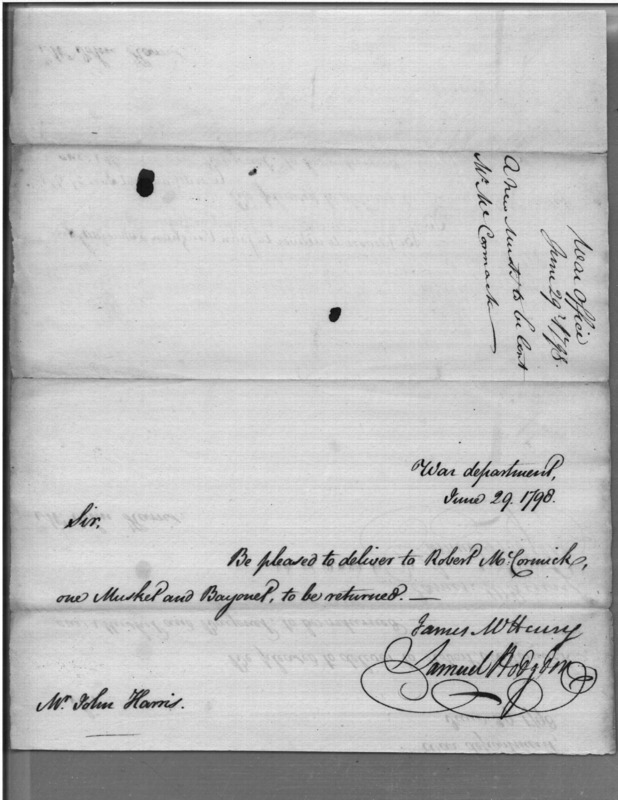 War Office
June 29th 1798.
A new Musket to be lent
Mr. McCormack
War department,
June 29. 1798.
Sir,
Be pleased to deliver to Robert McCormick,
one Musket and Bayonet, to be returned. —
James McHenry
Samuel Hodgdon
Mr. John Harris.